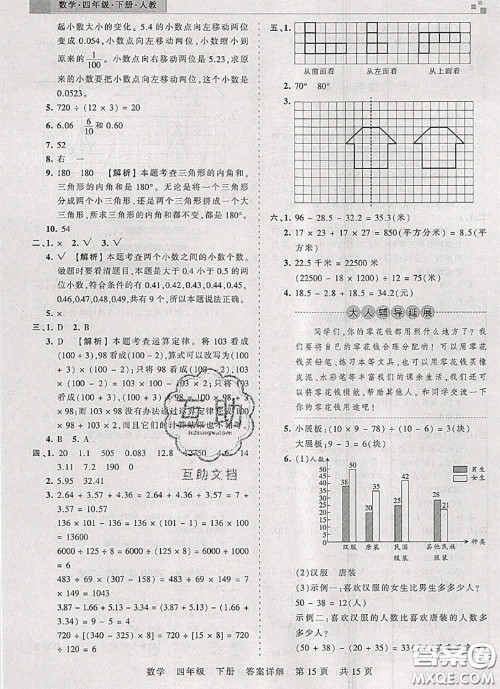 数学·四年级·下册·人教
起小数大小的变化。5.4的小数点向左移动两位
变成0.054,小数点向左移动两位,小数缩小到
原来的1/100。小数点向右移动两位是5.23,求原来
小数要把小数点向左移动两位,小数变成
0.0523。
5. 720÷(12×3)=20
6. 6.06 6/10和0.60
7. 52
8. 右 一
9. 180 180 【解析】本题考查三角形的内角和。
三角形的内角和是180°。无论是将一个大三
角形分成两个小三角形,还是将两个小三角形
拼成一个大三角形,内角和都不变,都是180°。
10. 54
二、1. × 2. √ 3. √
4. √ 【解析】本题考查两个小数之间的小数个数。
做题时要看清题目,本题是大于0.4小于0.5的两
位小数,符合条件的有0.41,0.42,0.43,0.44,0.45,
0.46,0.47,0.48,0.49,共有9个,所以本题说法正确。
5. ×
三、1. D 2. B
3. D 【解析】本题考查运算定律。将103×98变成
(100+3),98×(100+3),98×100+98×3
(100+3)×98,所以B,C算式可以改写为103×
98。将103×98的98改写成(100-2),103×
98,103×(100-2),103×100-103×2,所以A
算式可以改写为103×98。D算式100×98+3=
103×98,而103×98没有办法通过运算定律变成
100×98+3,而且两个算式的计算结果也不相等。
4. B 5. A
四、1. 20 1.1 505 0.283 12.8 12750 4.6 14
3.11 7.2 160 0
5. 9.53-(2.53-0.4)
=9.53-2.53+0.4
=7.4
136×101-136
=136×(101-1)
=13600
6000÷125÷8
=6000÷(125×8)
=6
483÷69×(157-149)
=483÷69×8
=56
3.82+2.9+0.18+9.1
=(3.82+0.18)+(2.9+9.1)
=16
720÷[(0.8+1.2)×5]
=720÷(2×5)
=72
五、1.
从前面看 从左面看 从上面看
2. 70° 80°
3.
六、1. 96-28.5-32.2=35.3(米)
2. 17×23+27×17=850(平方分米)=8.5(平方米)
3. 22.5千米=22500米
(22500-1250)÷85=250(米/分)
4. 18.5-2.8+18.5=34.2(元)
大人辅导延展
同学们,你们的零花钱都用到什么地方了?我
们要将自己的零花钱合理分配呦!可以用零花钱
买铅笔、练习本等文具,也可以用零花钱买橡皮
泥、彩笔等丰富我们的课余生活,还可以用零花钱
帮助需要帮助的人,和同学交流一下你的零花钱
的用途吧!
5. 小展板:(10×9-78)÷(10-6)=3(块)
大展板:9-3=6(块)
6. (1)人数/人
50
40
30
20
10
0
38 50 35 42 20 16 28 21
汉服 唐装 民国服装 其他民族服装 种类
男生
女生
(2)汉服 唐装
(3)示例一:喜欢汉服的女生比男生多多少人?
50-38=12(人)
示例二:喜欢汉服的人数比喜欢唐装的人数多
多少人?
数学 四年级 下册 答案详解 第15页 共15页
互助
互助文档
答案